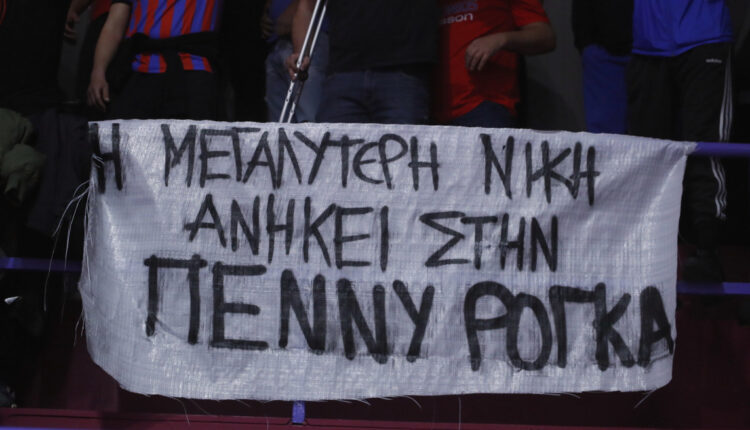 Η ΜΕΓΑΛΥΤΕΡΗ ΝΙΚΗ
ΑΝΗΚΕΙ ΣΤΗΝ
ΠΕΝΝΥ ΡΟΓΚΑ